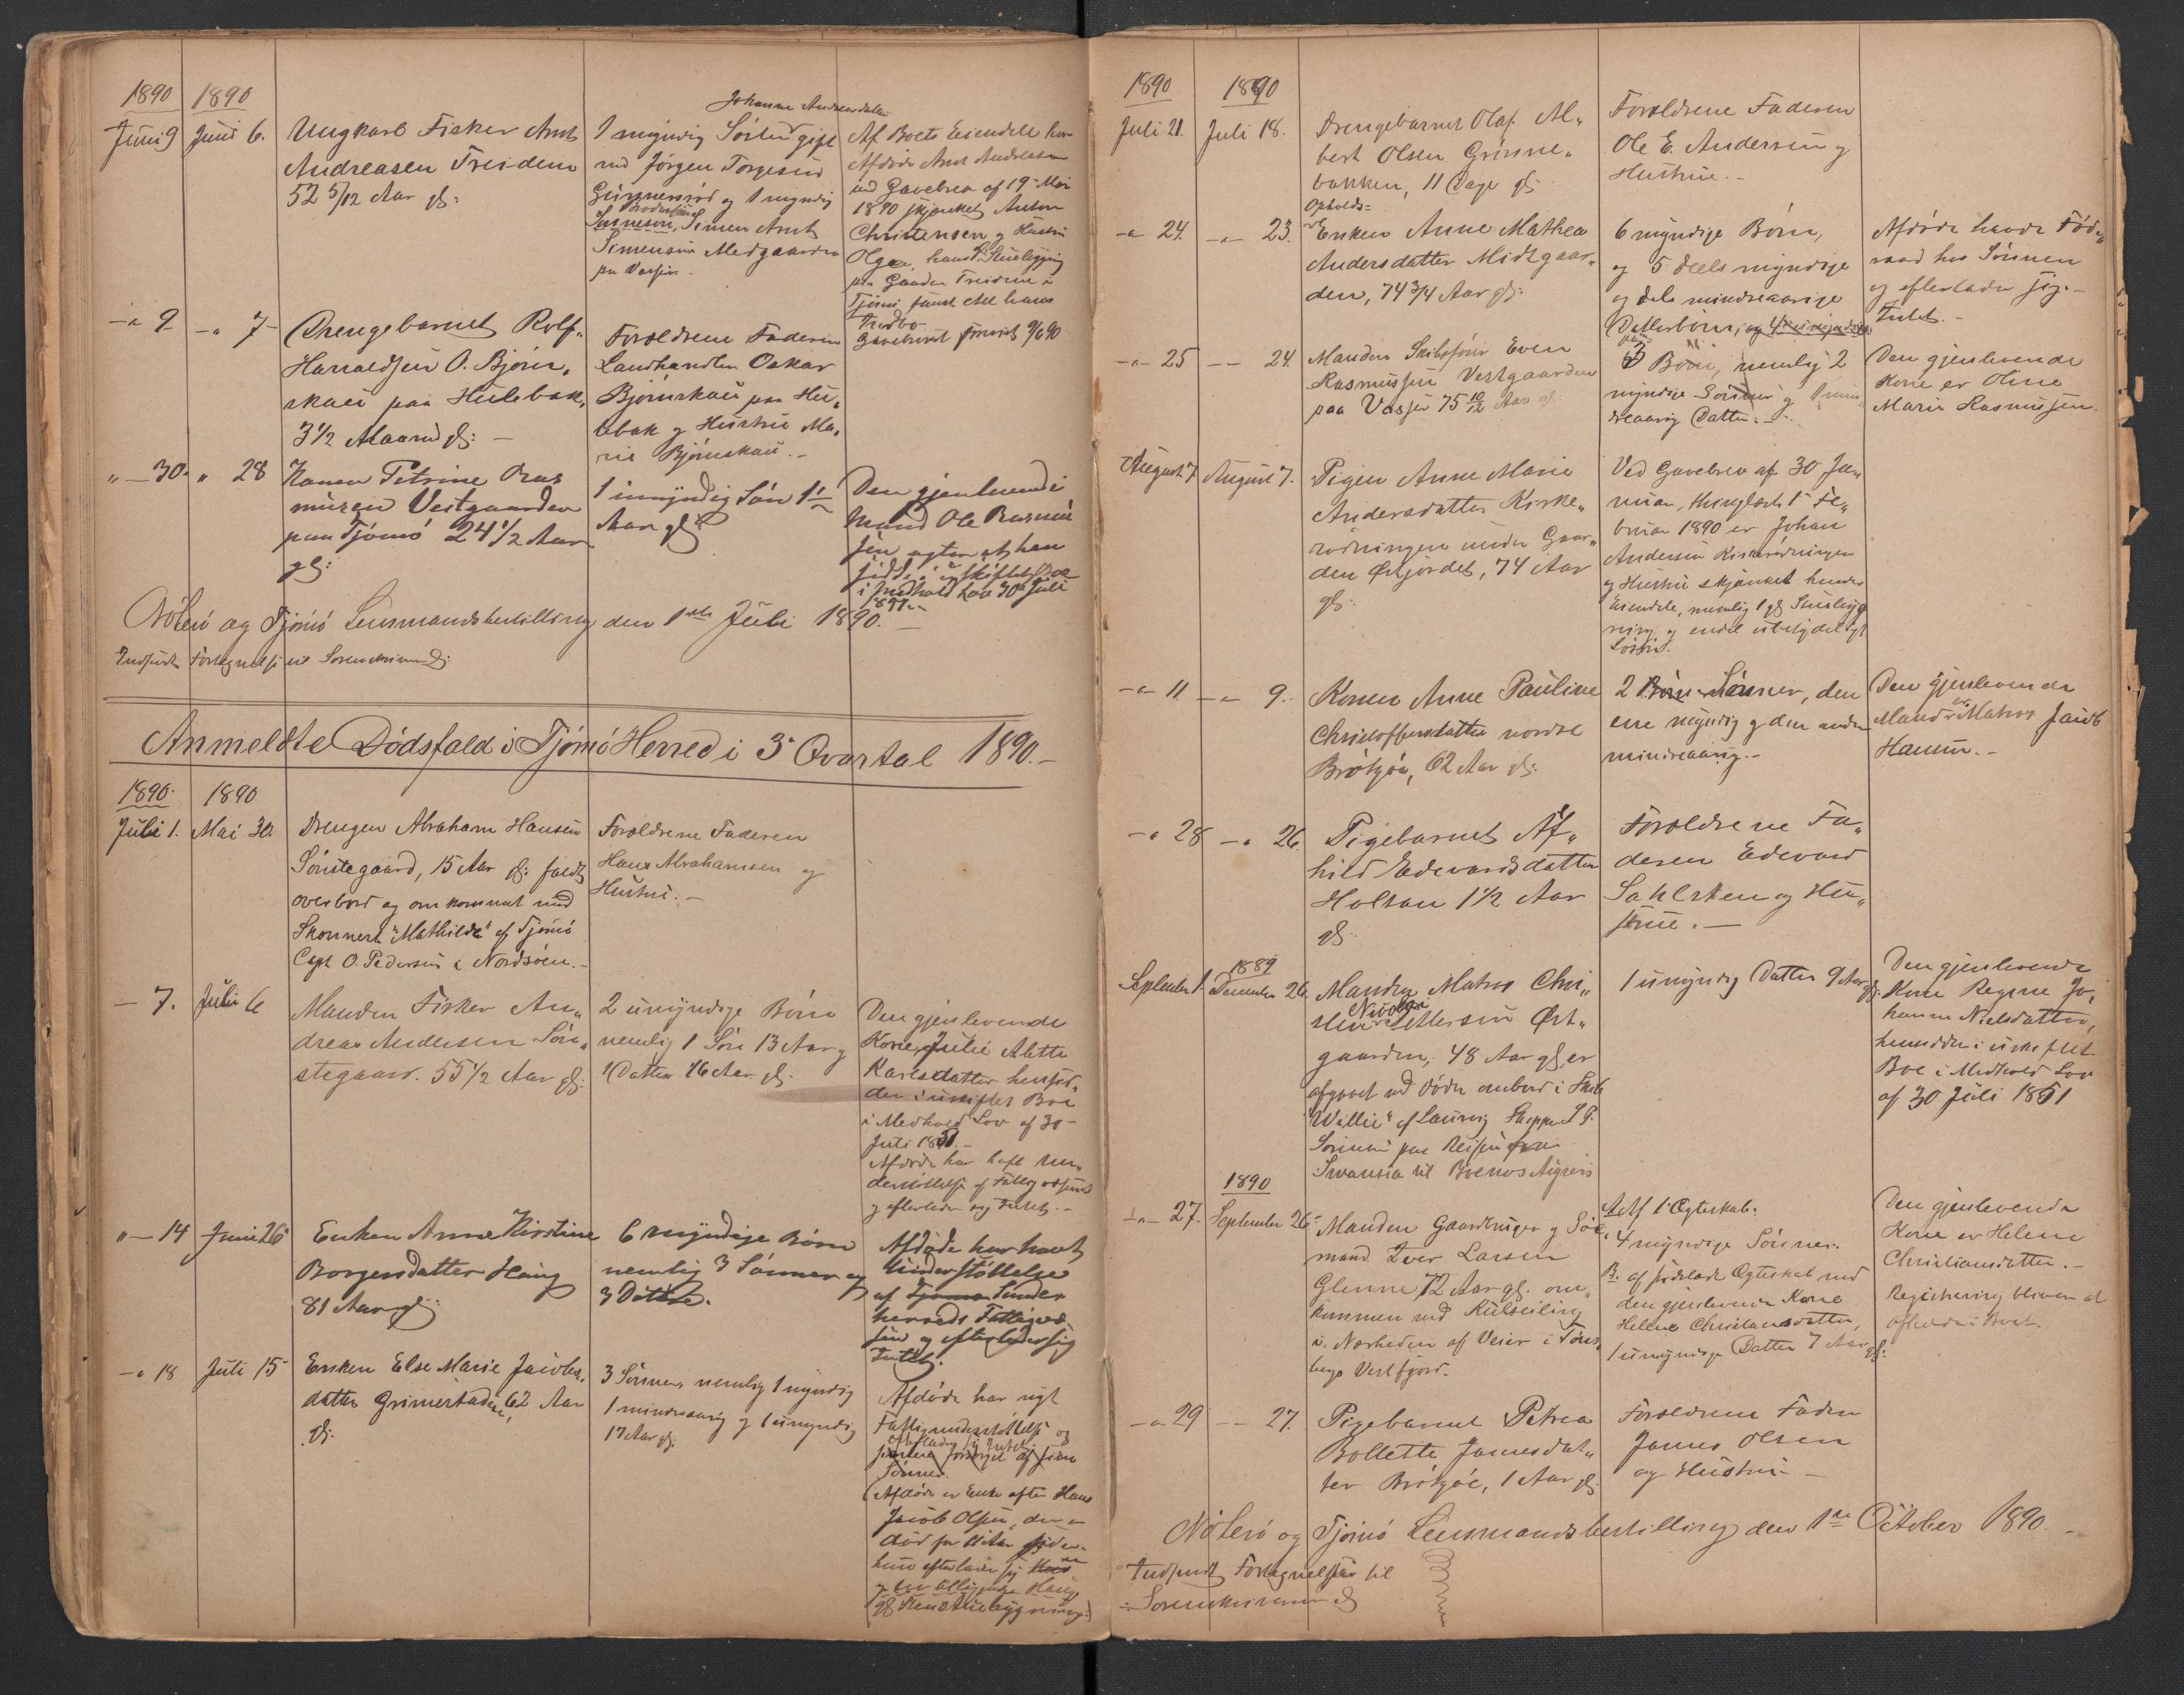 1890 1890
Juni 9 Juni 6. Ungkarl Fisker Arnt
Andreasen Treidene
52 5/12 Aar gl:
Johanne Andreasdatter
1 myndig Søster gift
med Jørgen Torgersen
og 1 myndig
Brodersøn
Simen Arnt
Simensen Medgaarden
paa Vasser
Af Boets Eiendele har
Afdøde Arnt Andreasen
ved Gavebrev af 19 Mai
1890 skjænket Anton
Christensen og Hustru
Olga, hans Huusbygning
paa Gaarden Treidene i
Tjømø samt Alt hans
Indbo
Gavebrevet forevist 9/6 90
-"- 9 -"- 7 Drengebarnet Rolf
Haraldsen O. Bjørn„
skau paa Hulebak,
3 1/2 Maaned gl: —
Foroldrene Faderen
Landhandler Oskar
Bjørnskau paa Hu„
lebak og Hustru Ma„
rie Bjørnskau. -
" — 30 " 28 Konen Petrine Ras
musen Vestgaarden
paa Tjømø 24 1/2 Aar
gl:
1 umyndig Søn 1 1/2
Aar gl
Den gjenlevende
Mand Ole Rasmus
sen agter at hen
sidde i uskiftet Boe
i Medhold Lov 30 Juli
1851. -
Nøterø og Tjømø Lensmandsbestilling den 1ste Juli 1890. —
Indsendt Fortegnelse til Sorenskriveren
Anmeldte Dødsfald i Tjømø Herred i 3 Qvartal 1890. -
1890 1890
Juli 1. Mai 30. Drengen Abraham Hansen
Sønstegaard, 15 Aar gl: faldt
overbord og omkommet med
Skonnert "Mathilde" af Tjømø
Capt O. Pedersen i Nordsøen. -
Foroldrene Faderen
Hans Abrahamsen og
Hustru. -
— 7. Juli 6 Manden Fisker An„
dreas Andersen Søn„
stegaard. 55 1/2 Aar gl:
2 umyndige Børn
nemlig 1 Søn 13 Aar og
1 Datter 16 Aar gl.
Den gjenlevende
Kone Julie Alette
Karlsdatter hensid„
der i uskiftet Boe
i Medhold Lov af 30
Juli 1851. -
Afdøde har havt Un„
derstøttelse af Fattigvæsenet
og efterlader sig Intet. -
" — 14 Juni 26 Enken Anne Kirstine
Borgersdatter Haug
81 Aar gl:
6 myndige Børn
nemlig 3 Sønner og
3 Døttre.
Afdøde har havt
Understøttelse
af Tjømø Sønder
herreds Fattigvæ
sen og efterlader sig
Intet.
-" 18 Juli 15 Enken Else Marie Jacobs„
datter Grimestadene, 62 Aar
gl:
3 Sønner, nemlig 1 myndig
1 mindreaarig og 1 umyndig
17 Aar gl:
Afdøde har nydt
Fattigunderstøttelse og
efterlader sig Intet
forsørget af sine
Sønner.
(Afdøde er Enke efter Hans
Jacob Olsen, der er
død for 11 Aar siden
hun efterlader sig
1890 1890
Juli 21. Juli 18. Drengebarnet Olaf Al„
bert Olsen Grinne„
bakken, 11 Dage gl:
Foroldrene Faderen
Ole E. Andersen og
Hustrue. -
-"- 24. -"- 23. Opholds=
Enken Anne Mathea
Andersdatter Midtgaar„
den, 74 3/4 Aar gl:
6 myndige Børn,
og 5 deels myndige
og dels mindreaarige
Datterbørn,
Afdøde havde Føde„
raad hos Sønnen
og efterlader sig -
Intet. -
-"- 25 -"- 24. Manden Skibsfører Even
Rasmussen Vestgaarden
paa Vasser 75 10/12 Aar gl:
3 Børn, nemlig 2
myndige Sønner og 1 min
dreaarig Datter. -
Den gjenlevende
Kone er Oline
Marie Rasmussen.
August 7 August 7. Pigen Anne Marie
Andersdatter Kirke„
rødningen under Gaar„
den Østjordet, 74 Aar
gl:
Ved Gavebrev af 30 Ja„
nuar, thinglæst 1 Fe„
bruar 1890 er Johan
Andersen Kirkerødningen
og Hustru skjænket hendes
Eiendele, nemlig 1 gl Huusbyg
ning og endel ubetydeligt
Løsøre.
-"- 11 -"- 9. Konen Anne Pauline
Christoffersdatter nordre
Brøtsøe, 62 Aar gl:
2 Børn Sønner, den
ene myndig og den anden
mindreaarig. -
Den gjenlevende
Mand er Matros Jacob
Hansen. -
-"- 28 -"- 26. Pigebarnet Alf„
hild Edvardsdatter
Holtan 1 1/2 Aar
gl:
Foroldrene Fa„
deren Edevard
og Hu„
strue. —
September 1 1889 December 26. Manden Matros Chri„
sten Nicolai Pettersen Øst„
gaarden, 48 Aar gl, er
afgaaet ved døden ombord i Skib
"Wallie" af Laurvig Skipper
Sørensen paa Reisen fra
Swansia til Boenos Aigres
1 umyndig Datter 9 Aar gl:
Den gjenlevende
Kone Regine Jo„
hanne Nielsdatter,
hensidder i uskiftet
Boe i Medhold Lov
af 30 Juli 1851
1890
-"- 27. September 26. Manden Gaardbruger og Sø„
mand Iver Larsen
Glenne, 72 Aar gl. om„
kommen ved Kulseiling
i Nærheden af Veier i Tøns
bergs Vestfjord.
A. Af 1. Ægteskab:
4 myndige Sønner.
B. af sidste Ægteskab med
den gjenlevende Kone
Helene Christiansdatter,
1 umyndige Datter 7 Aar gl:
Den gjenlevende
Kone er Helene
Christiansdatter. -
Registrering bliver at
afholde i Boet.
-"- 29 -"- 27. Pigebarnet Petrea
Bollette Jamesdat„
ter Brøtsøe, 1 Aar gl:
Foroldrene Fader
James Olsen
og Hustru —
Nøterø og Tjømø Lensmandsbestilling den 1ste October 1890. -
Indsendt Fortegnelse til
Sorenskriveren